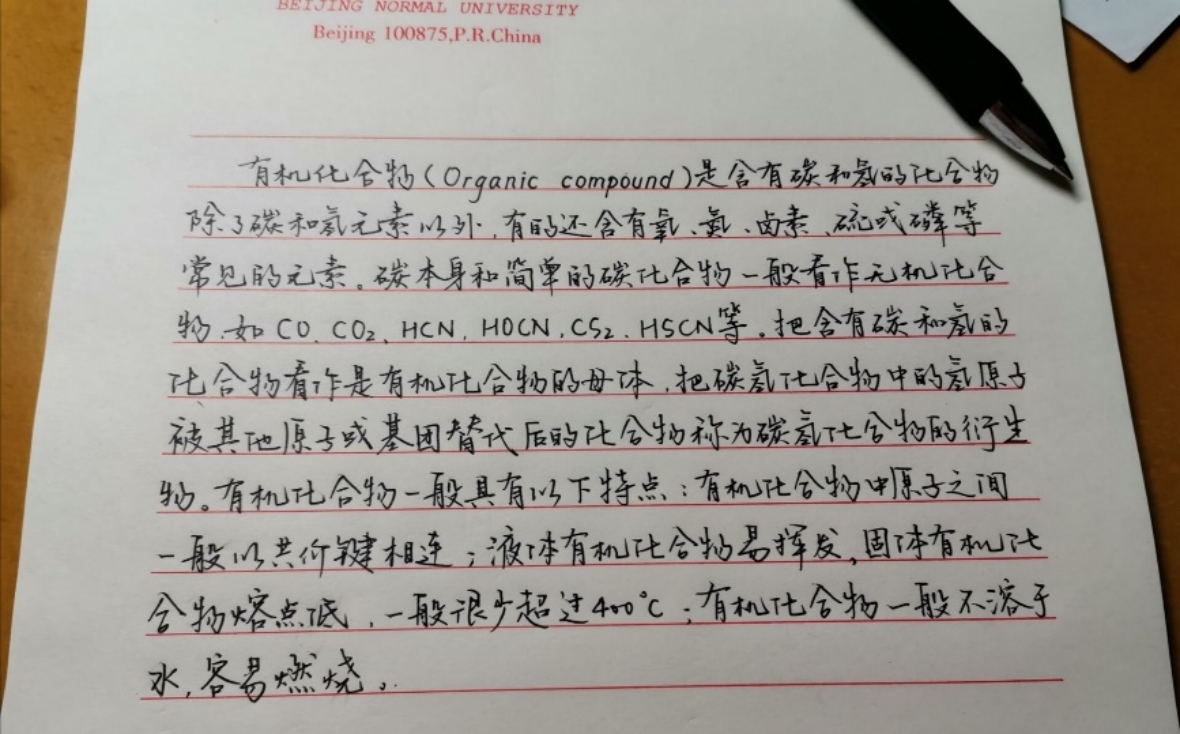 BEIJING NORMAL UNIVERSITY
Beijing 100875,P.R.China
有机化合物(Organic compound)是含有碳和氢的化合物
除了碳和氢元素以外,有的还含有氧、氮、卤素、硫或磷等
常见的元素。碳本身和简单的碳化合物一般看作无机化合
物,如CO、CO₂、HCN、HOCN、CS₂、HSCN等。把含有碳和氢的
化合物看作是有机化合物的母体,把碳氢化合物中的氢原子
被其他原子或基团替代后的化合物称为碳氢化合物的衍生
物。有机化合物一般具有以下特点:有机化合物中原子之间
一般以共价键相连;液体有机化合物易挥发,固体有机化
合物熔点低,一般很少超过400℃;有机化合物一般不溶于
水,容易燃烧。